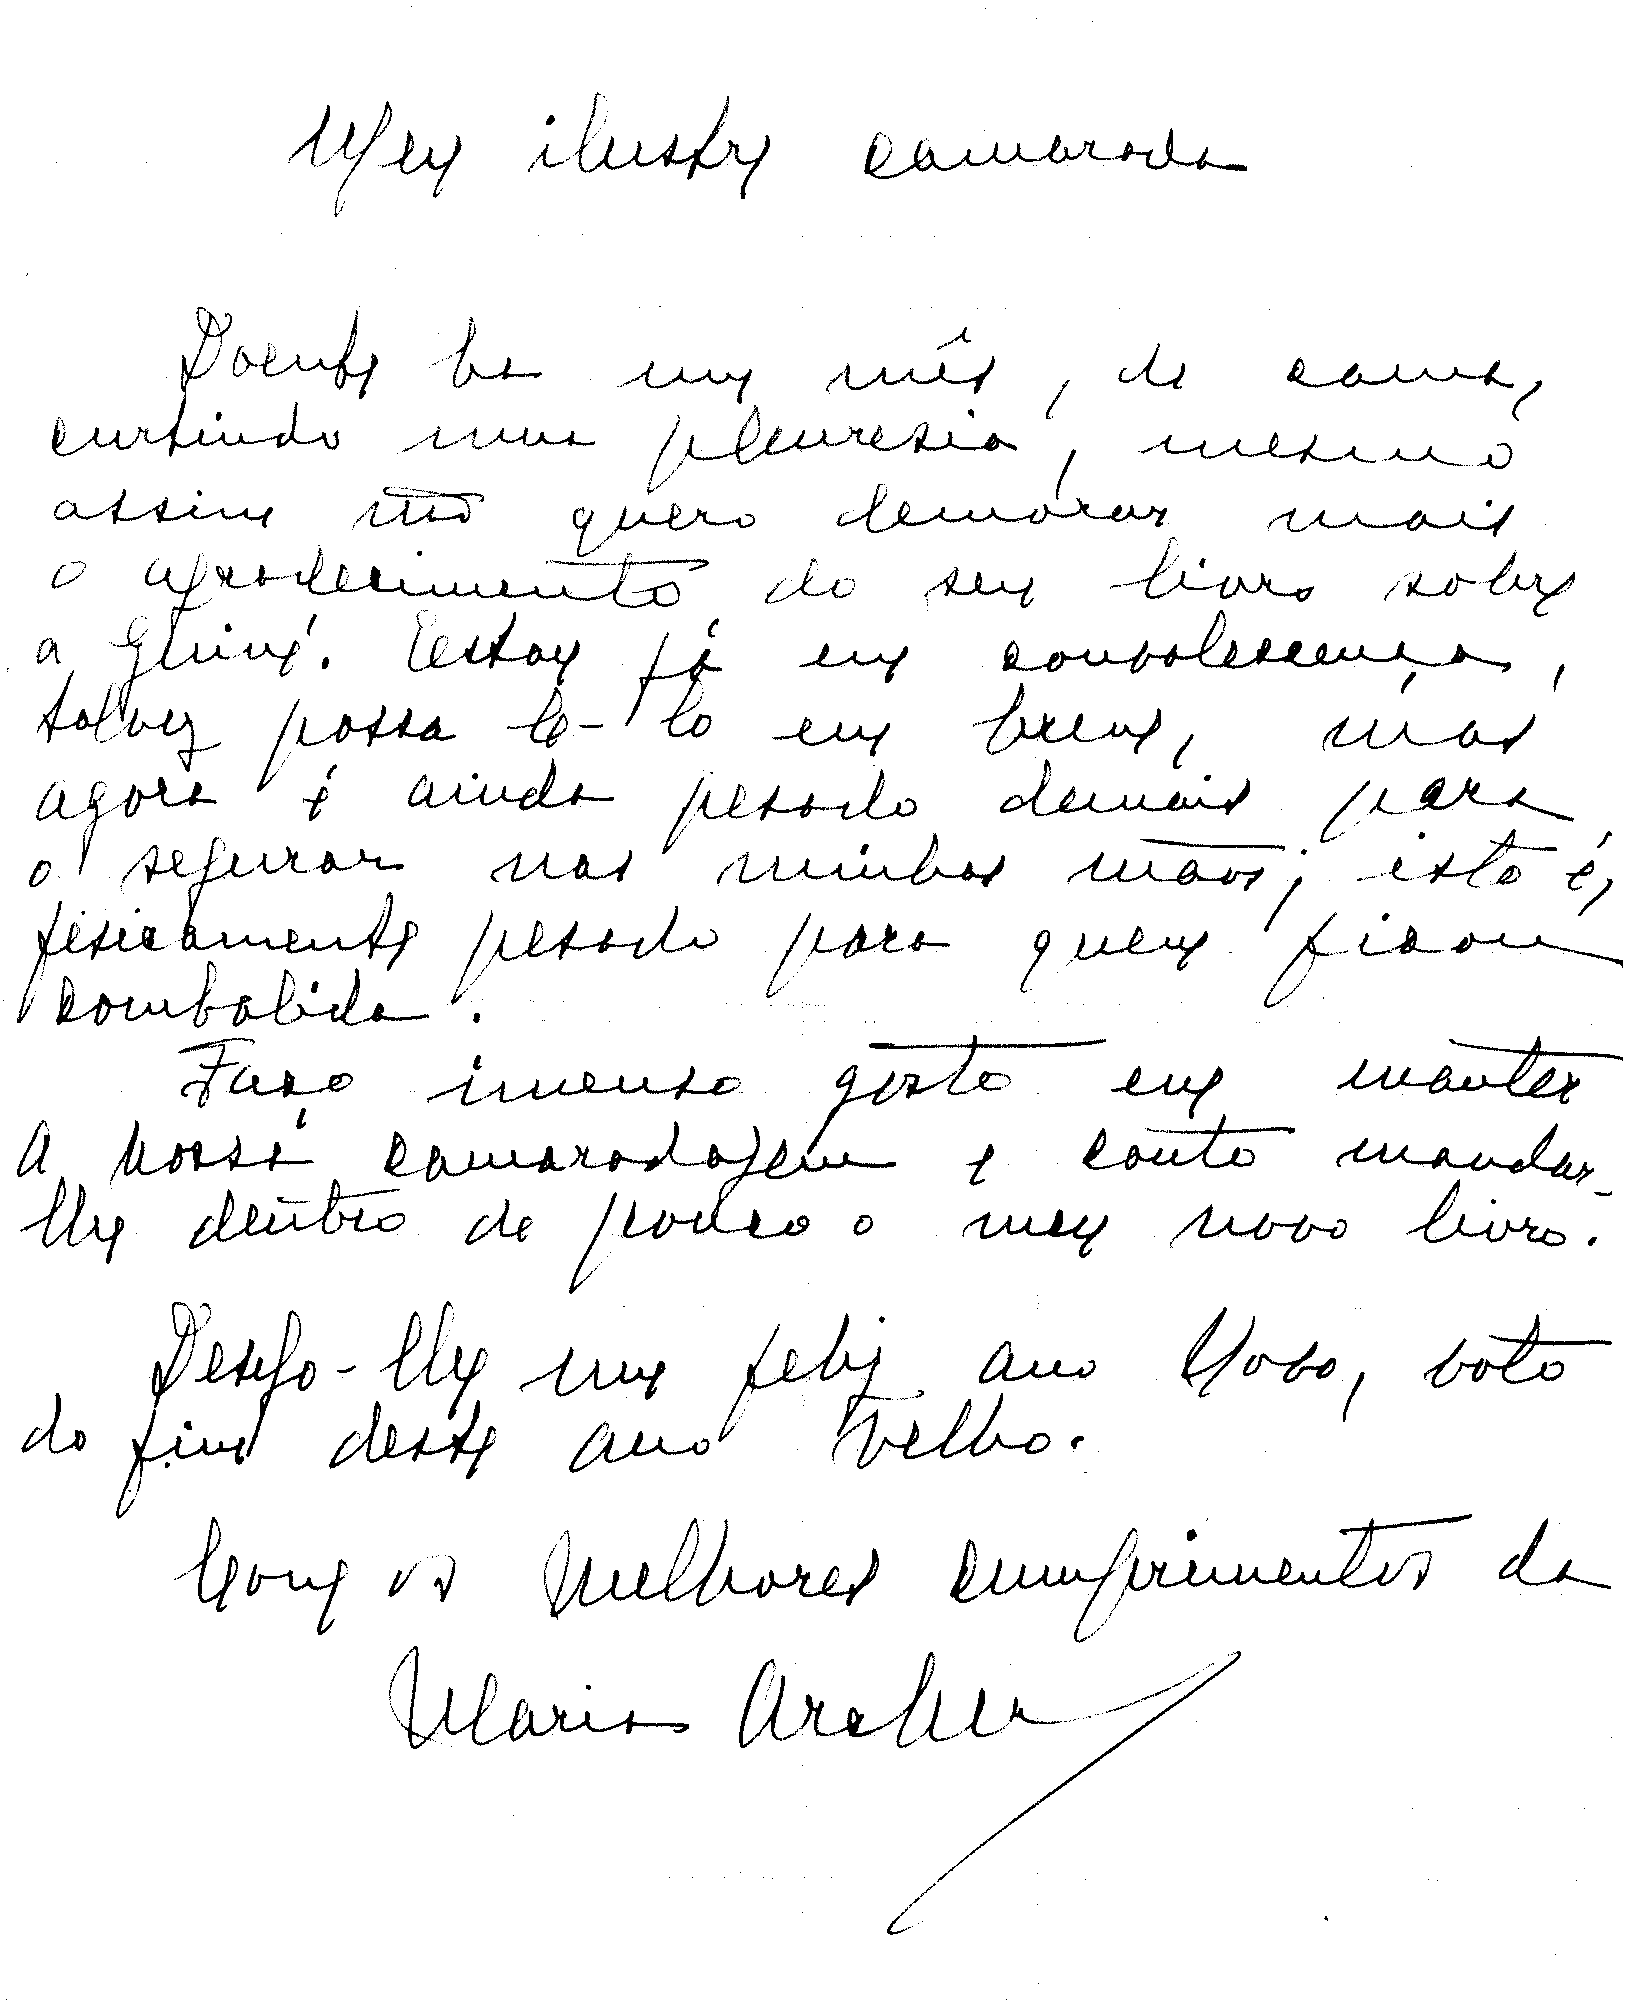 Meu ilustre camarada
Doente ha um mês, de cama,
curtindo uma pleuresia, mesmo
assim não quero demorar mais
o agradecimento do seu livro sobre
a Guiné. Estou já em convalescença,
talvez possa lê-lo em breve, mas
agora é ainda pesado demais para
o segurar nas minhas mãos; isto é,
fisicamente pesado para quem ficou
combalida.
Faço imenso gosto em manter
a nossa camaradagem e conto mandar-
lhe dentro de pouco o meu novo livro.
Desejo-lhe um feliz ano Novo, voto
do fim deste ano velho.
Com os melhores cumprimentos da
Maria Archer